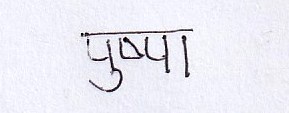 पुष्पा